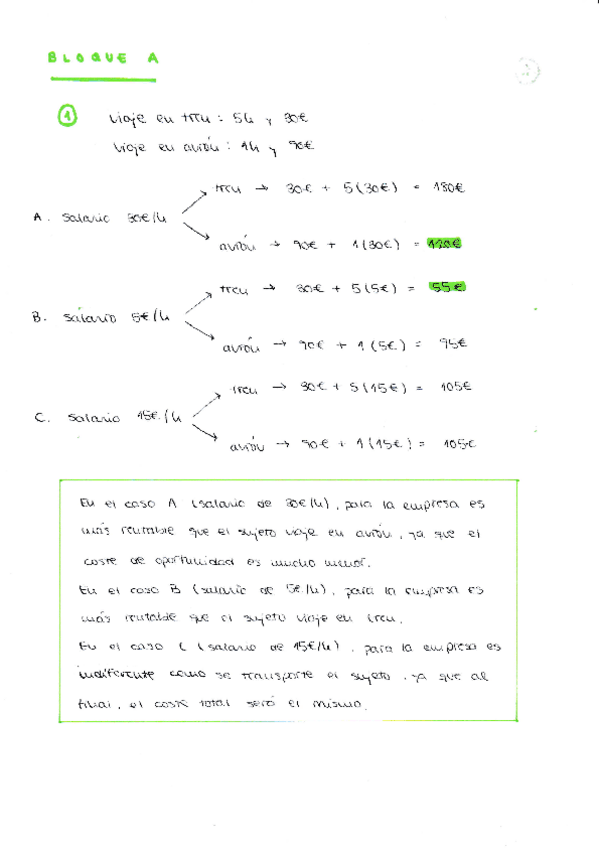 BLOQUE A
1 viaje en tren : 5h y 30€
viaje en avión : 1h y 90€
tren → 30€ + 5(30€) = 180€
A. salario 30€/h
avión → 90€ + 1(30€) = 120€
tren → 30€ + 5(5€) = 55€
B. salario 5€/h
avión → 90€ + 1(5€) = 95€
tren → 30€ + 5(15€) = 105€
C. salario 15€/h
avión → 90€ + 1(15€) = 105€
En el caso A (salario de 30€/h), para la empresa es
más rentable que el sujeto viaje en avión, ya que el
coste de oportunidad es mucho menor.
En el caso B (salario de 5€/h), para la empresa es
más rentable que el sujeto viaje en tren.
En el caso C (salario de 15€/h), para la empresa es
indiferente como se transporte el sujeto, ya que al
final, el coste total será el mismo.